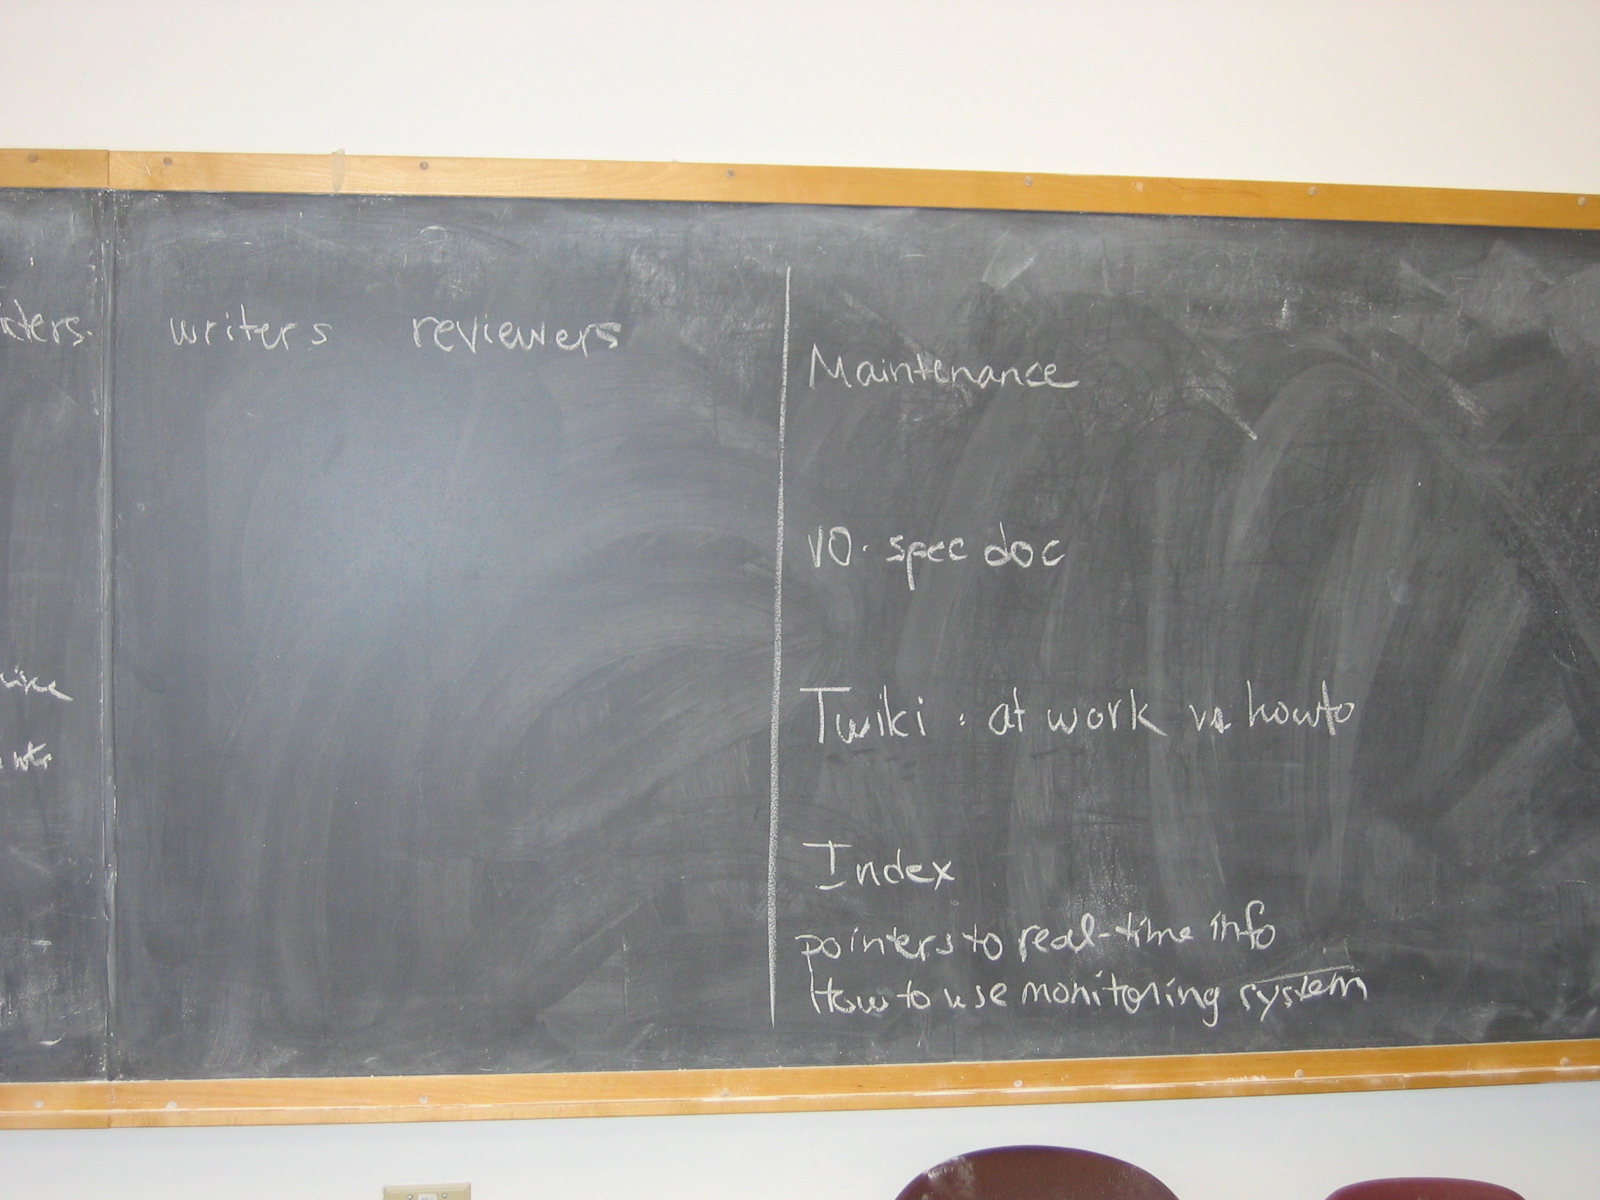 writers reviewers
Maintenance
VO. spec doc
Twiki : at work vs howto
Index
pointers to real-time info
How to use monitoring system